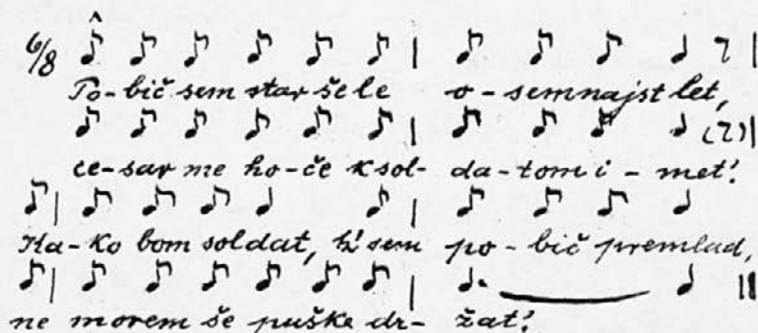 6/8
Po-bič sem star še le o-semnajst let,
ce-sar me ho-če k sol-da-tom i-met!
Ka-ko bom soldat, k' sem po-bič premlad,
ne morem še puške dr-žat!